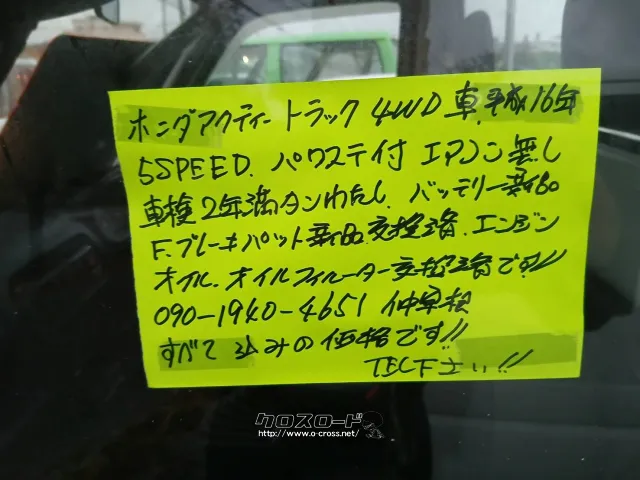 ホンダアクティートラック 4WD車 平成16年
5SPEED. パワステ付 エアコン無し
車検2年満タンわたし. バッテリー新品
F.ブレーキパット新品交換済. エンジン
オイル. オイルフィルーター交換済です!!
090-1940-4651
すべて込みの価格です!!
TEL下さい!!
クロスロード
http://www.o-cross.net/